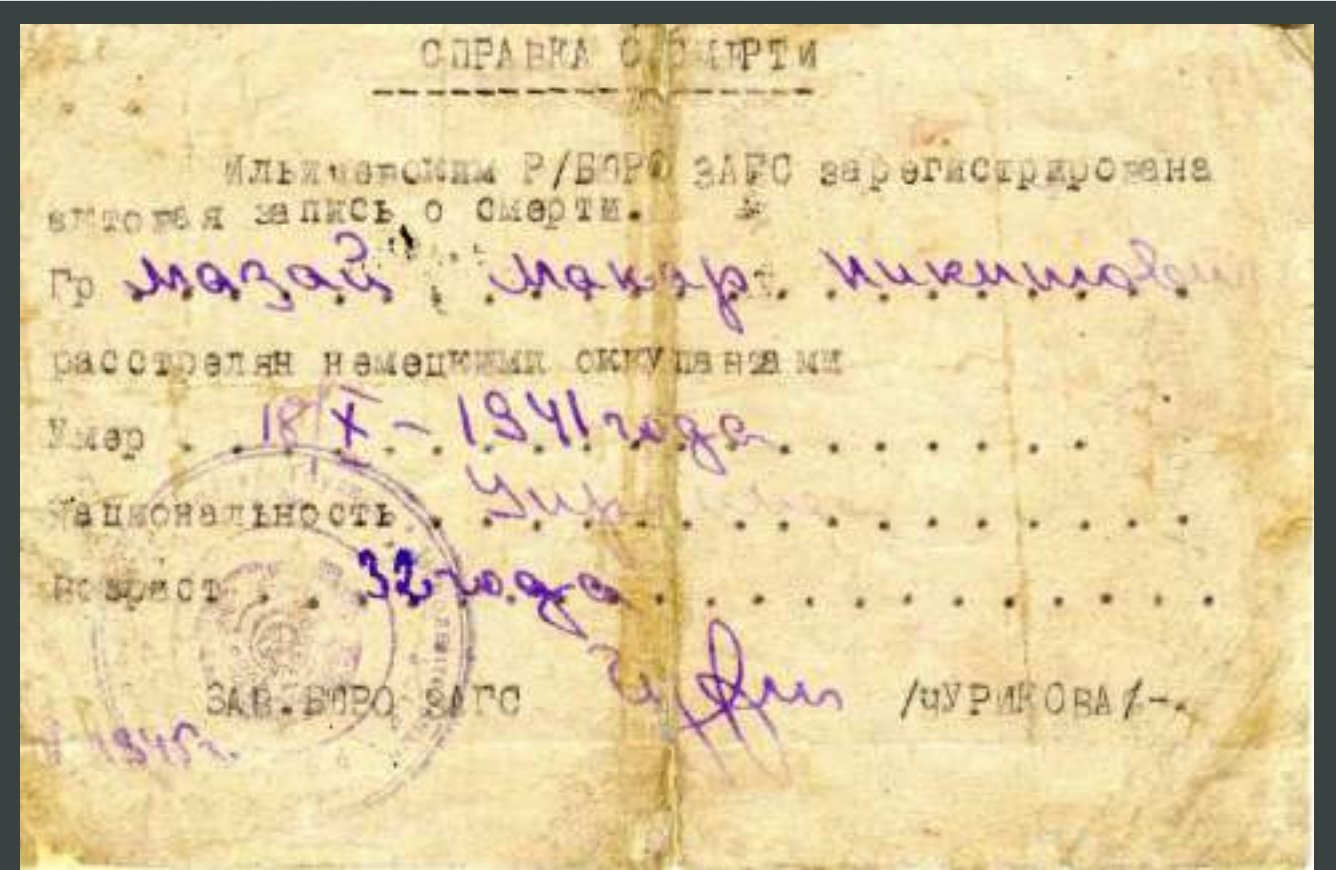 СПРАВКА О СМЕРТИ
Ильичевским Р/БЮРО ЗАГС зарегистрирована
актовая запись о смерти.
Гр Мазай Макар Никитович
расстрелян немецкими оккупантами
Умер 18/X - 1941 года
Национальность
Возраст 32 года
ЗАВ.БЮРО ЗАГС /ЧУРИКОВА/-.
1945г.